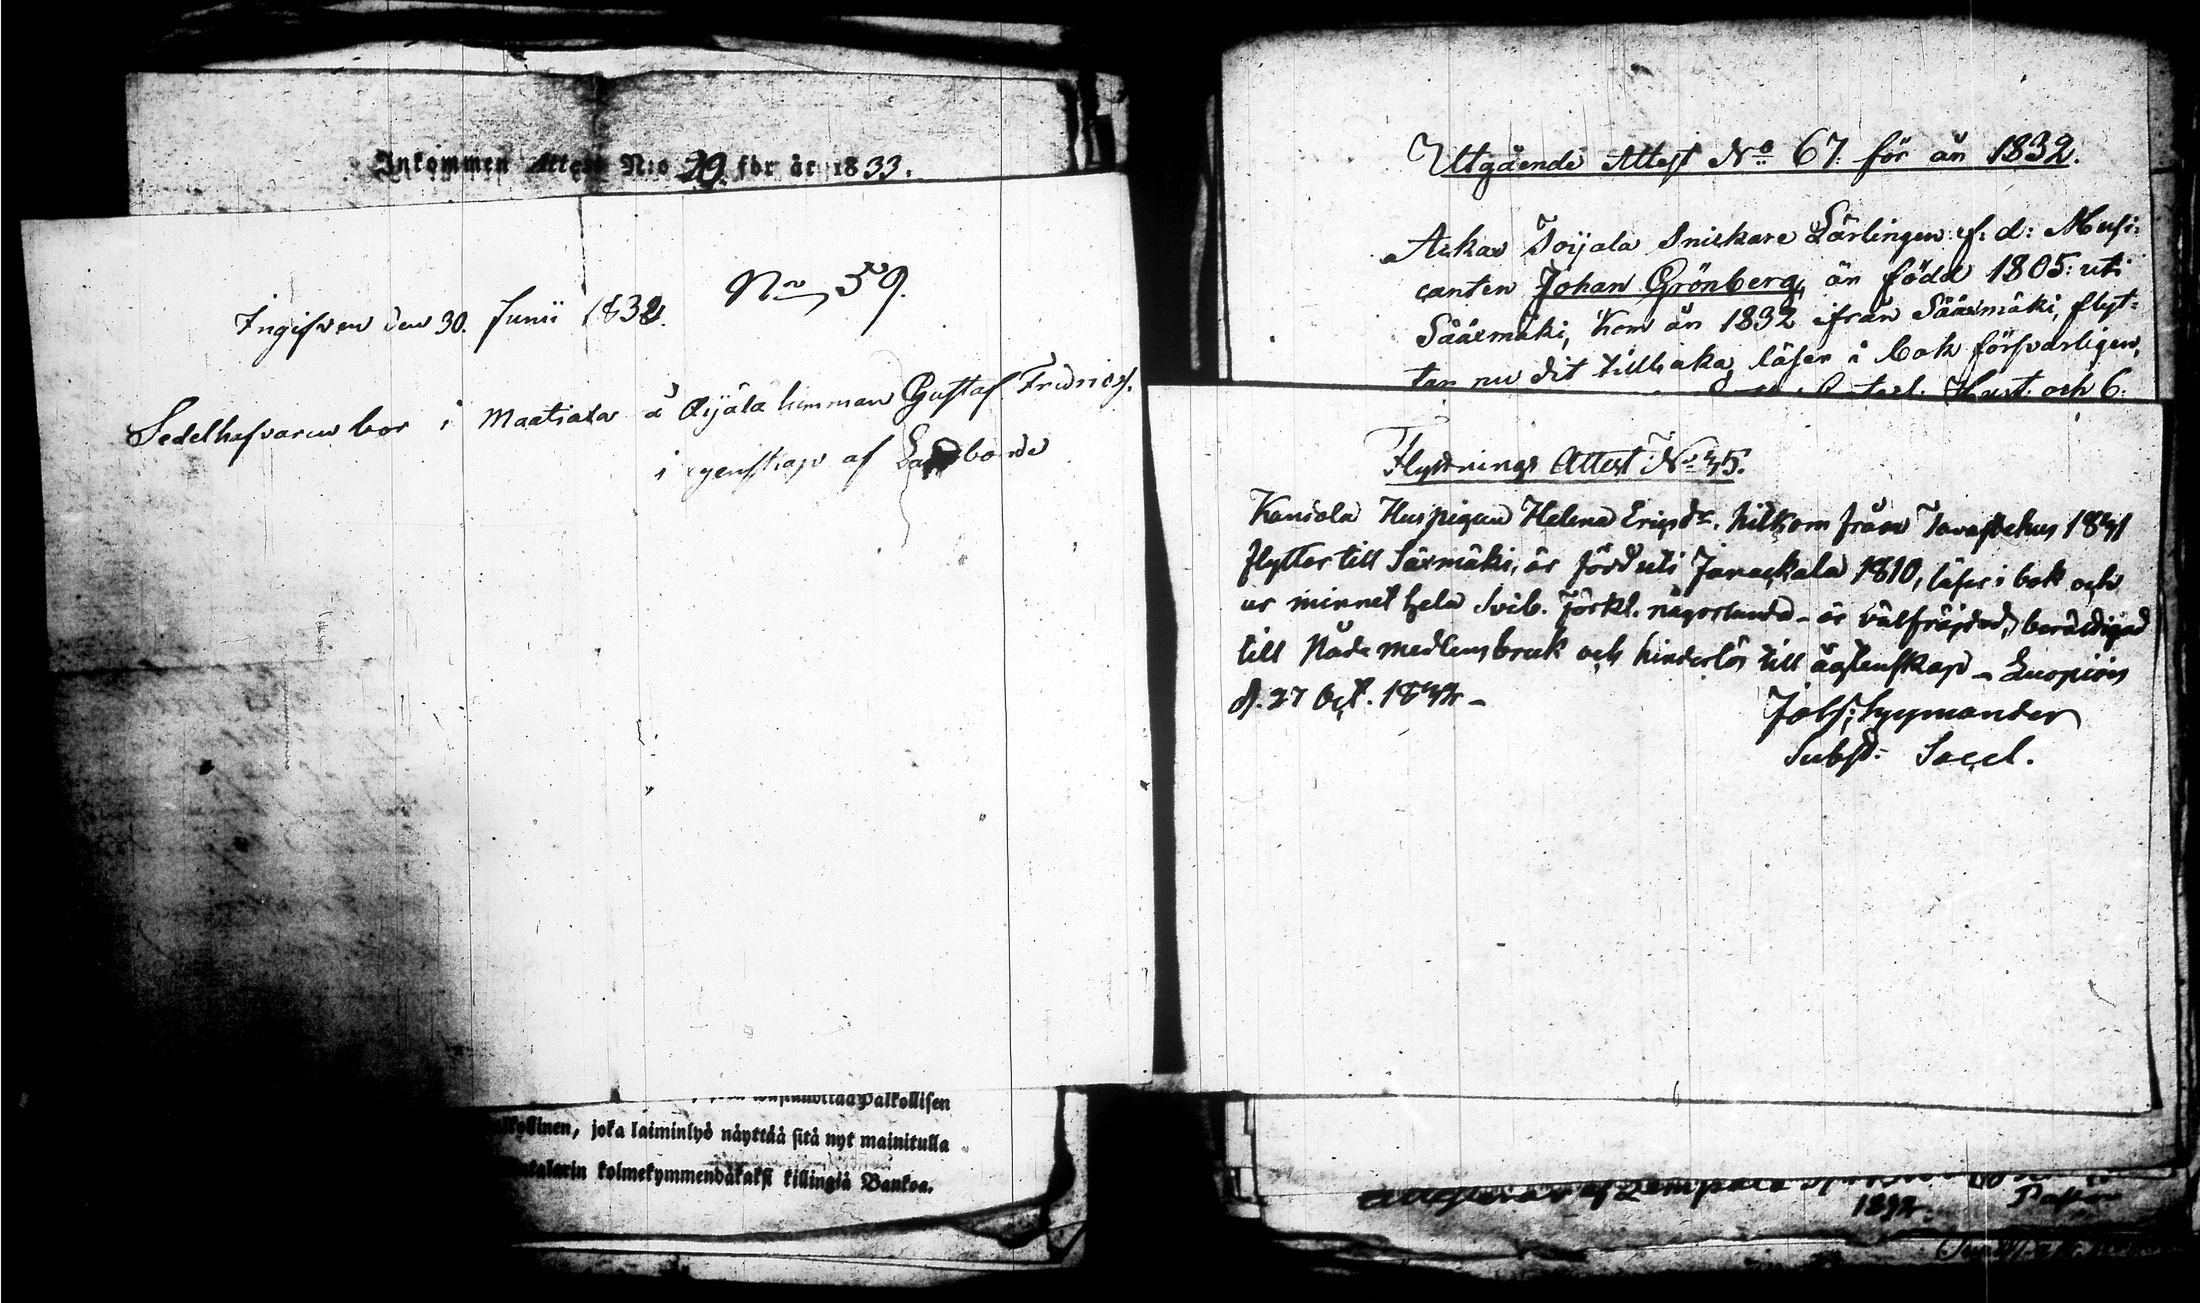 Inkommen Attest N:o 29 för år 1833.
No 59.
Ingifven den 30. Junii 1832.
Sedelhafvaren bor i Maatiala å Äijälä hemman Gustaf Fredrics.
i egenskap af Landbonde
Palkollisen
joka laiminlyö näyttää sitä nyt mainitulla
kolmekymmendäkaksi killingiä Bankoa.
Utgående Attest No 67. för år 1832.
Ackas Toijala Snickare Lärlingen f: d: Musi:
canten Johan Grönberg, är född 1805: uti
Sääxmäki, kom år 1832 ifrån Sääxmäki, flyt:
tar nu dit tillbaka, läser i bok försvarligen,
Hust. och 6:
Flyttnings Attest No 45.
Kaniola Huspigan Helena Ericsdr. hitkom från Tavastehus 1841
flyttar till Säxmäki, är född uti Janackala 1810, läser i bok och
ur minnet hela Svib. förkl. någorlunda – är välfräjdad, berättigad
till Nådemedlens bruk och hinderlös till ägtenskap – Luopiois
d. 27 Oct. 1842 –
Joh: Hyymander
Subst: Sacel.
1832.